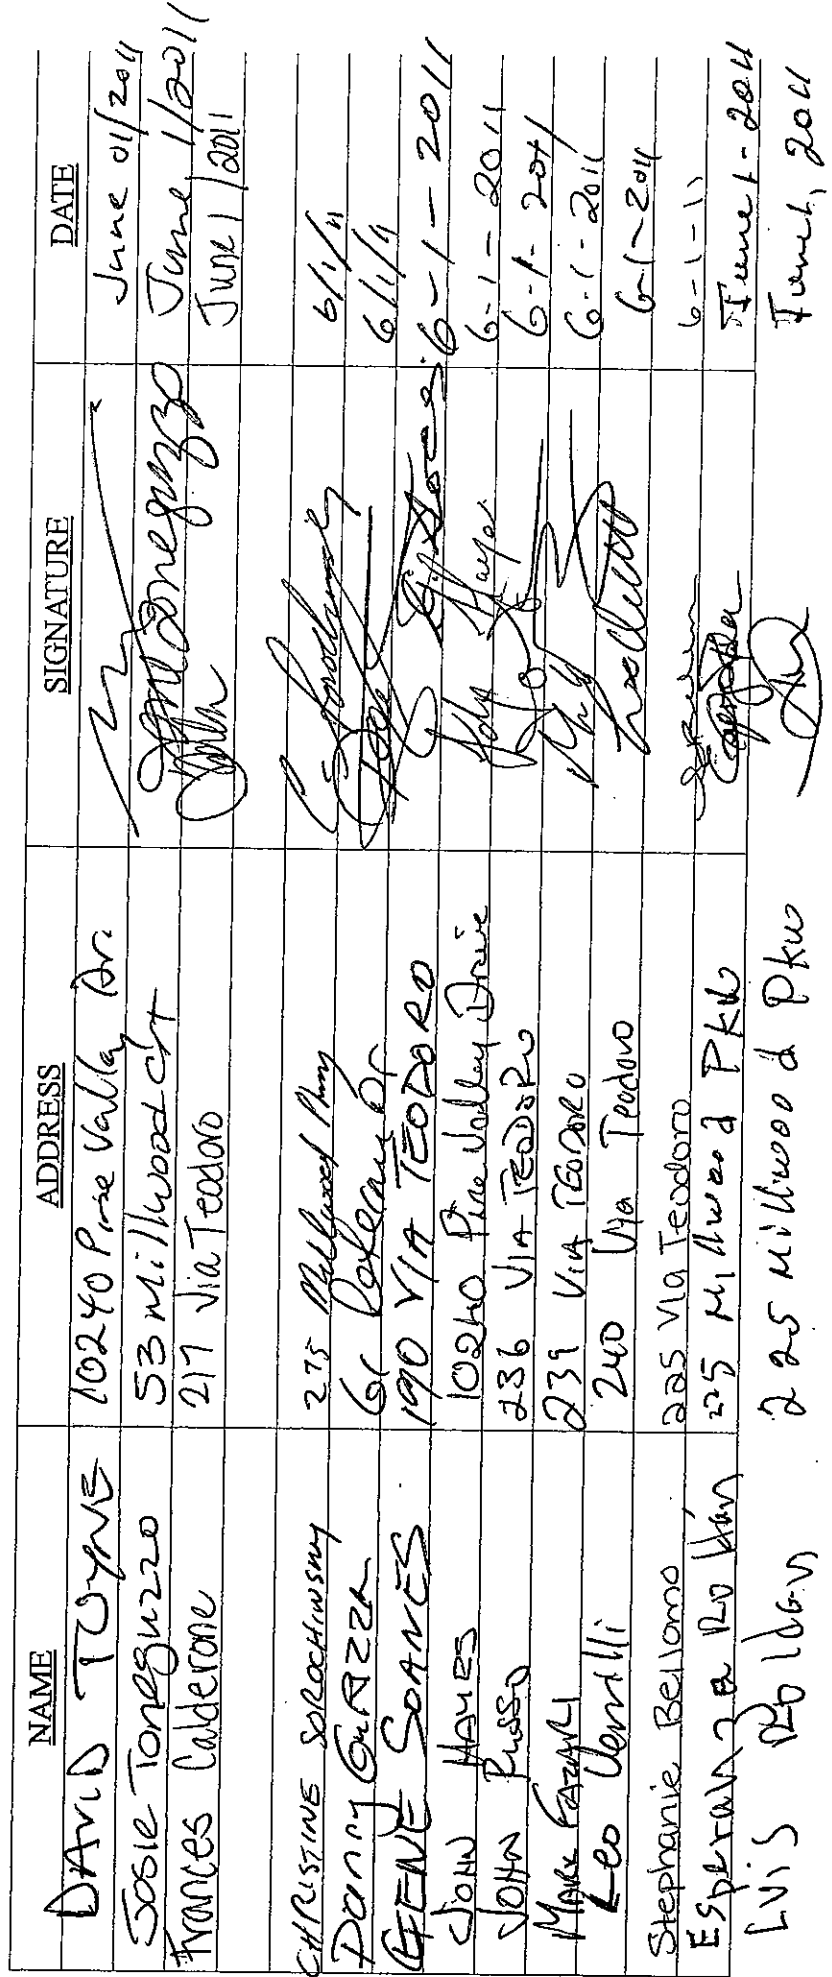 NAME ADDRESS SIGNATURE DATE
DAVID TOYNE 10240 Pine Valley Dr. June 01/2011
Josie Toneguzzo 53 Millwood Crt June 1/2011
Frances Calderone 217 Via Teodoro June 1/2011
CHRISTINE SOROCHINSKY 275 Millwood Pkwy 6/1/11
Danny 61 Dr 6/1/11
GENE SOANES 190 VIA TEODORO 6-1-2011
JOHN HAYES 10240 Pine Valley Drive John Hayes 6-1-2011
JOHN RUSSO 236 VIA TEODORO 6-1-2011
MARK 239 VIA TEODORO 6-1-2011
Leo 240 Via Teodoro 6-1-2011
Stephanie Bellomo 225 Via Teodoro 6-1-11
Esperanza Roldan 225 Millwood PKW June 1-2011
LUiS Roldan 225 Millwood Pkw June 1, 2011